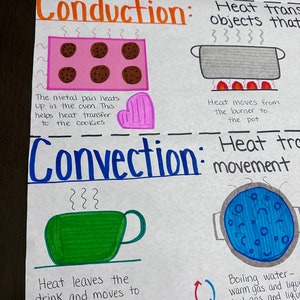 Conduction:
Heat trans
objects that
The metal pan heats
up in the oven. This
helps heat transfer
to the cookies
Heat moves from
the burner to
the pot
Convection:
Heat tra
movement
Heat leaves the
drink and moves to
Boiling water-
warm gas and liqu